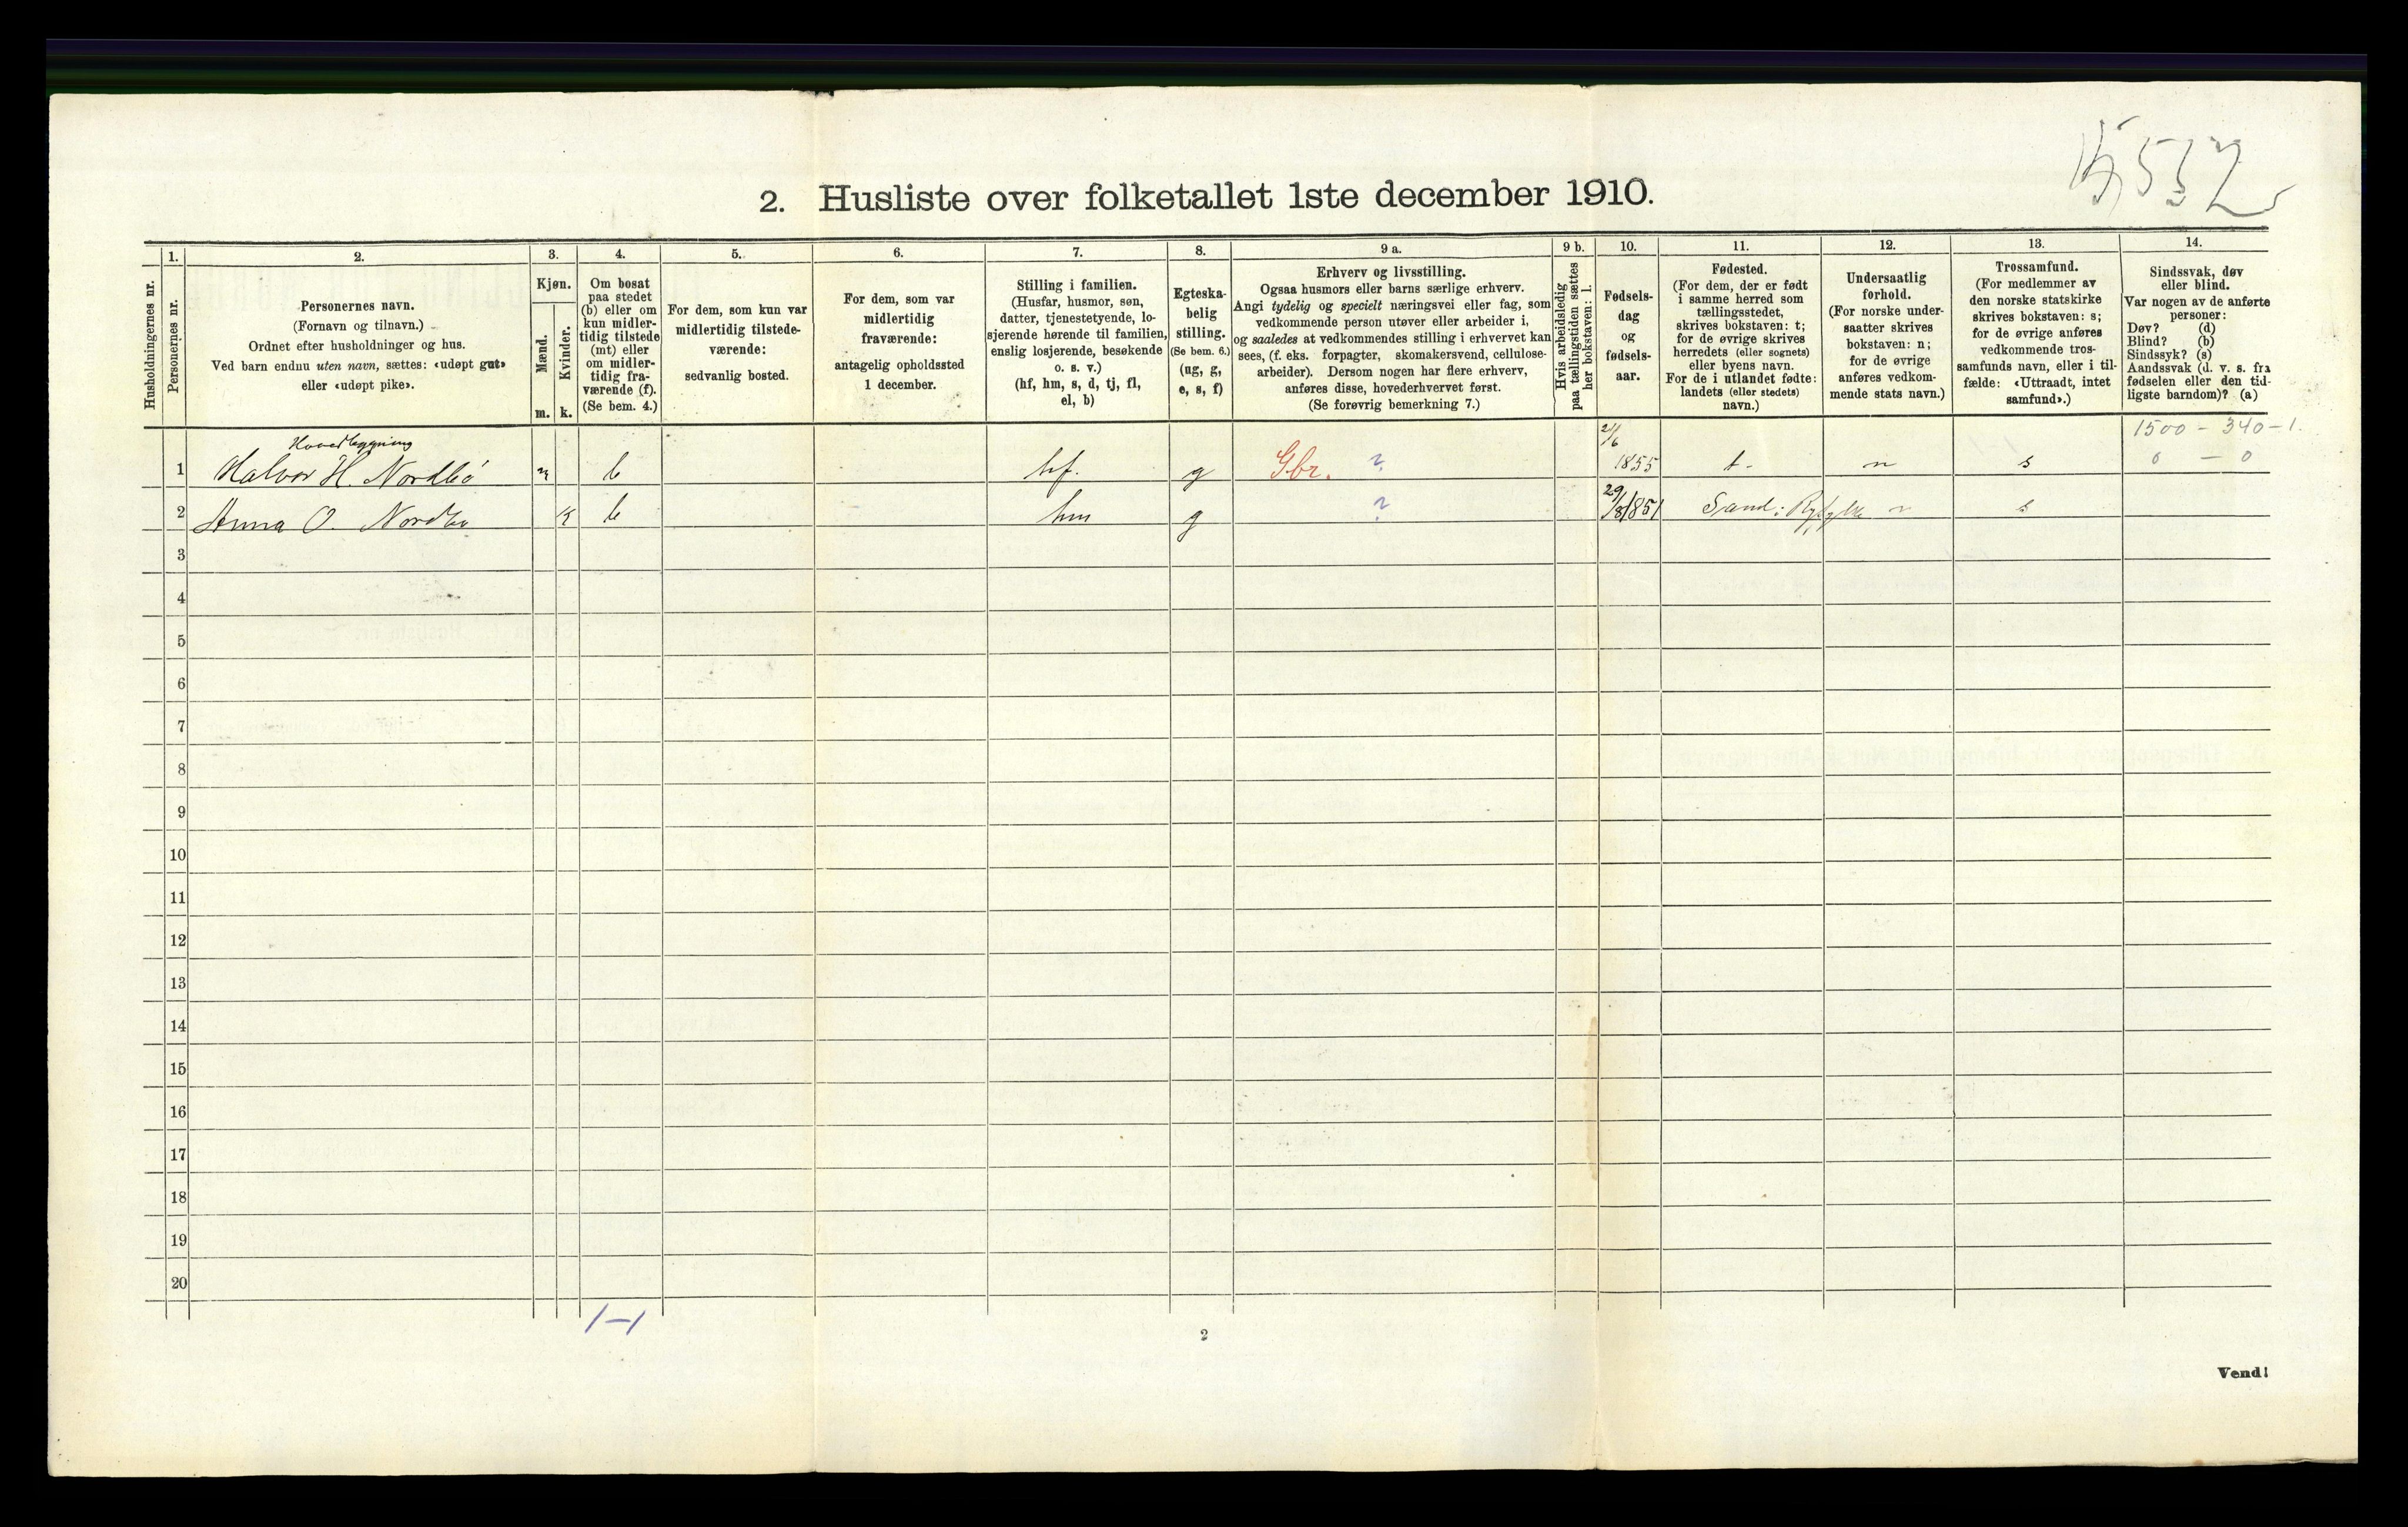 2. Husliste over folketallet 1ste december 1910.
Husholdningernes nr.
1.
Personernes nr.
2.
Personernes navn.
(Fornavn og tilnavn.)
Ordnet efter husholdninger og hus.
Ved barn endnu uten navn, sættes: «udøpt gut»
eller «udøpt pike».
3.
Kjøn.
Mænd.
m.
Kvinder.
k.
4.
Om bosat
paa stedet
(b) eller om
kun midler-
tidig tilstede
(mt) eller
om midler-
tidig fra-
værende (f).
(Se bem. 4.)
5.
For dem, som kun var
midlertidig tilstede-
værende:
sedvanlig bosted.
6.
For dem, som var
midlertidig
fraværende:
antagelig opholdssted
1 december.
7.
Stilling i familien.
(Husfar, husmor, søn,
datter, tjenestetyende, lo-
sjerende hørende til familien,
enslig losjerende, besøkende
o. s. v.)
(hf, hm, s, d, tj, fl,
el, b)
8.
Egteska-
belig
stilling.
(Se bem. 6.)
(ug, g,
e, s, f)
9 a.
Erhverv og livsstilling.
Ogsaa husmors eller barns særlige erhverv.
Angi tydelig og specielt næringsvei eller fag, som
vedkommende person utøver eller arbeider i,
og saaledes at vedkommendes stilling i erhvervet kan
sees, (f. eks. forpagter, skomakersvend, cellulose-
arbeider). Dersom nogen har flere erhverv,
anføres disse, hovederhvervet først.
(Se forøvrig bemerkning 7.)
9 b.
Hvis arbeidsledig
paa tællingstiden sættes
her bokstaven: l.
10.
Fødsels-
dag
og
fødsels-
aar.
11.
Fødested.
(For dem, der er født
i samme herred som
tællingsstedet,
skrives bokstaven: t;
for de øvrige skrives
herredets (eller sognets)
eller byens navn.
For de i utlandet fødte:
landets (eller stedets)
navn.)
12.
Undersaatlig
forhold.
(For norske under-
saatter skrives
bokstaven: n;
for de øvrige
anføres vedkom-
mende stats navn.)
13.
Trossamfund.
(For medlemmer av
den norske statskirke
skrives bokstaven: s;
for de øvrige anføres
vedkommende tros-
samfunds navn, eller i til-
fælde: «Uttraadt, intet
samfund».)
14.
Sindssvak, døv
eller blind.
Var nogen av de anførte
personer:
Døv? (d)
Blind? (b)
Sindssyk? (s)
Aandssvak (d. v. s. fra
fødselen eller den tid-
ligste barndom)? (a)
1500 - 340 - 1.
0 - 0
Hovedbygning
1 Halvor H. Nordbö m b hf. g Gbr. ? 1855 t. n s
2 Anna O. Nordbö k b hm g ? 29/8 1851 Sand: Ryfylke n s
3
4
5
6
7
8
9
10
11
12
13
14
15
16
17
18
19
20
1-1
2
Vend!